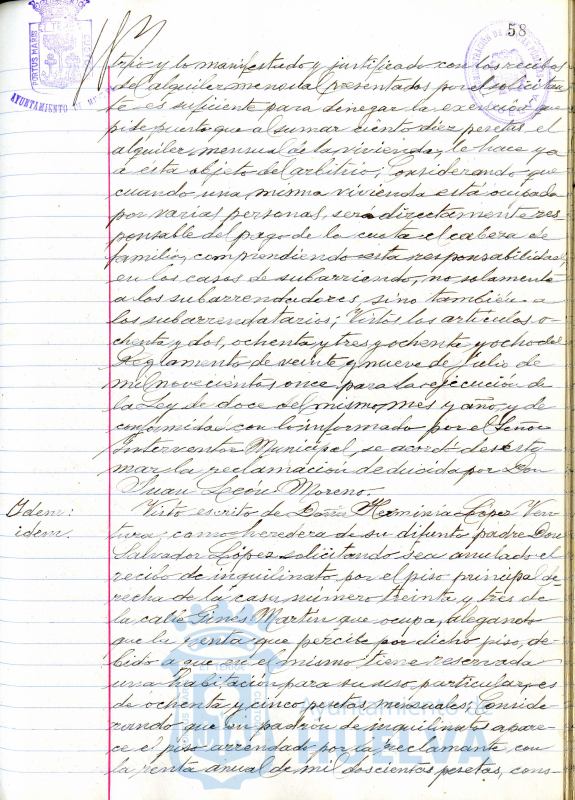 58
trio y lo manifestado y justificado con los recibos
del alquiler mensual presentados por el solicitan
te es suficiente para denegar la exención que
pide puesto que al sumar ciento diez pesetas el
alquiler mensual de la vivienda, le hace ya
a ésta objeto del arbitrio; Considerando que
cuando una misma vivienda está ocupada
por varias personas, será directamente res
ponsable del pago de la cuota el cabeza de
familia, comprendiendo esta responsabilidad,
en los casos de subarriendo, no solamente
a los subarrendadores, sino también a
los subarrendatarios; Vistos los artículos o-
chenta y dos, ochenta y tres y ochenta y ocho del
Reglamento de veinte y nueve de Julio de
mil novecientos once para la ejecución de
la Ley de doce del mismo mes y año, y de
conformidad con lo informado por el Señor
Interventor Municipal, se acordó desesti
mar la reclamación deducida por Don
Juan León Moreno.
Idem: Visto escrito de Doña Herminia López Ven
idem. tura, como heredera de su difunto padre Don
Salvador López solicitando sea anulado el
recibo de inquilinato por el piso principal de
recha de la casa número treinta y tres de
la calle Ginés Martín que ocupa, alegando
que la renta que percibe por dicho piso, de-
bido a que en el mismo tiene reservada
una habitación para su uso particular, es
de ochenta y cinco pesetas mensuales; Conside
rando que en padrón de inquilinatos apare-
ce el piso arrendado por la reclamante con
la renta anual de mil doscientas pesetas, cons-
PORTUS MARIS
AYUNTAMIENTO DE
Ayuntamiento de
HUELVA